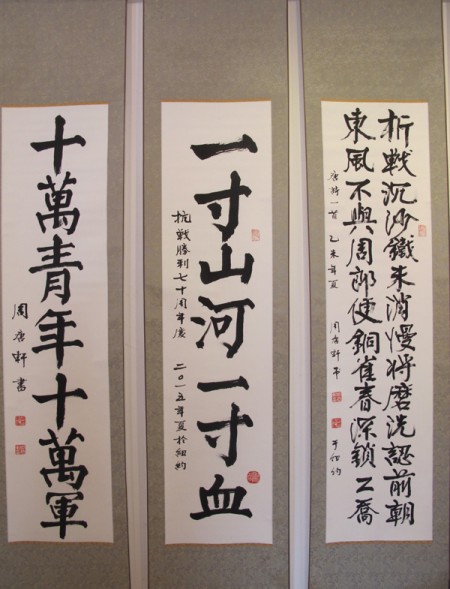 折戰沉沙鐵未消慢将磨洗認前朝
東風不與周郎便銅雀春深鎖二喬
唐詩一首 乙未年夏 周唐軒書 于纽约
一寸山河一寸血
抗戰勝利七十周年慶 二〇一五年夏於紐約
十萬青年十萬軍
周唐軒書